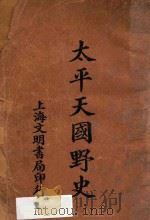 太平天國野史
上海文明書局印